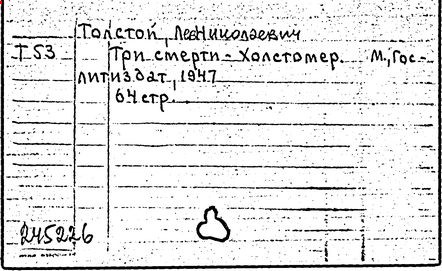 Толстой, Лев Николаевич
Т53 Три смерти - Холстомер. М., Гос-
литиздат, 1947
64 стр.
245226